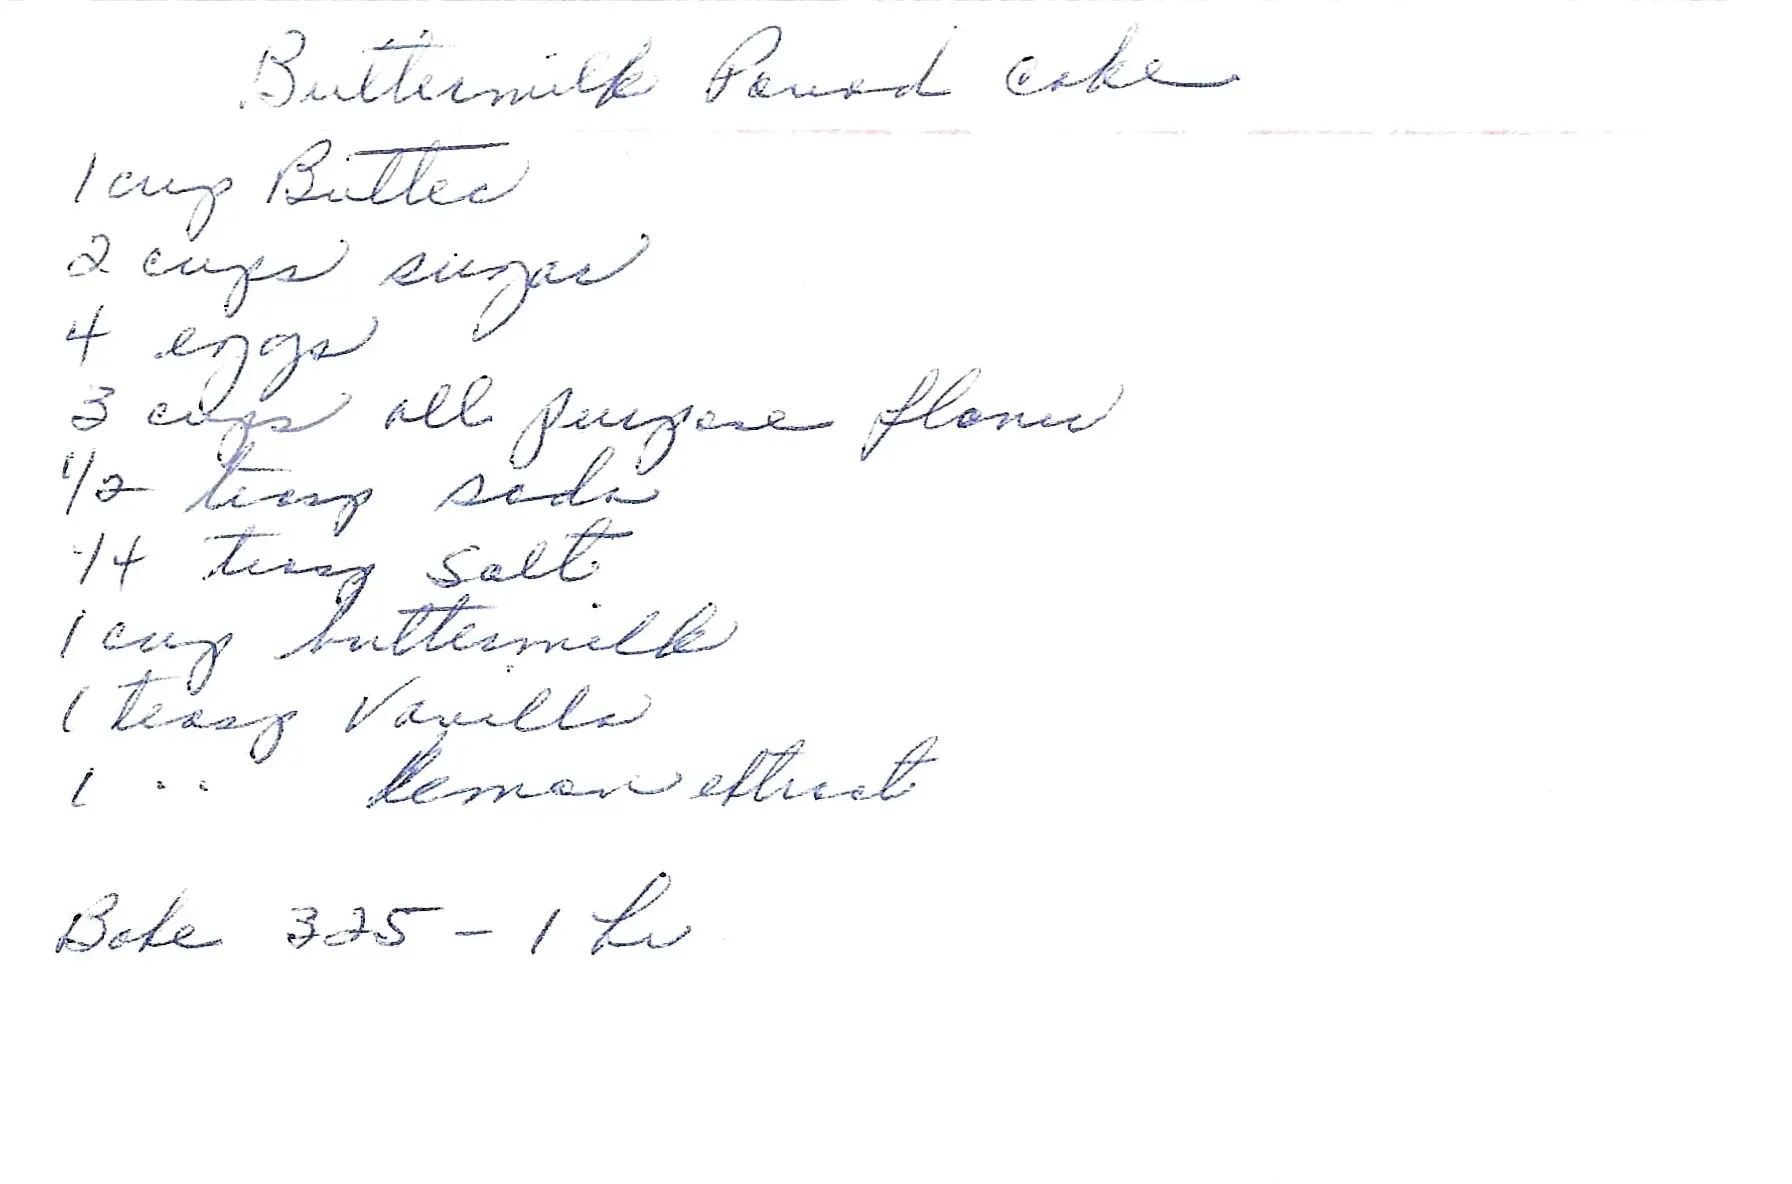 Buttermilk Pound cake
1 cup Butter
2 cups sugar
4 eggs
3 cups all purpose flour
1/2 teasp soda
1/4 teasp salt
1 cup buttermilk
1 teasp Vanilla
1 " lemon extract
Bake 325 - 1 hr